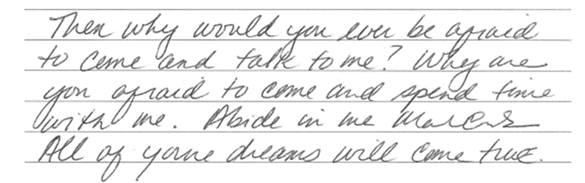 Then why would you ever be afraid
to come and talk to me? Why are
you afraid to come and spend time
with me. Abide in me Marcus
All of youre dreams will come true.